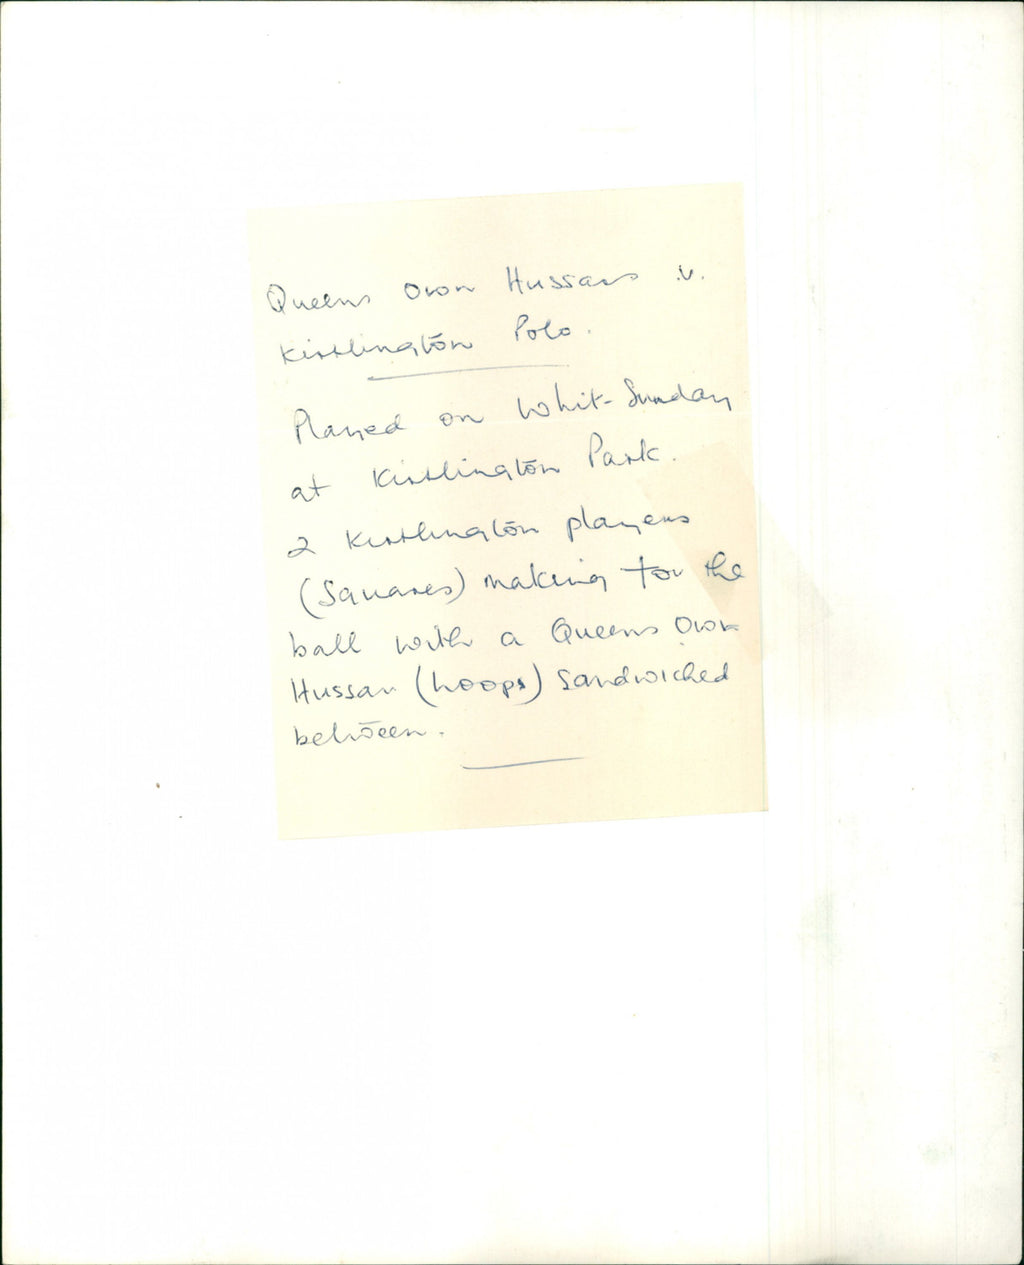 Queens Own Hussars .v.
Kirtlington Polo.
Played on Whit-Sunday
at Kirtlington Park.
2 Kirtlington players
(Squares) making for the
ball with a Queens Own
Hussar (hoops) sandwiched
between.